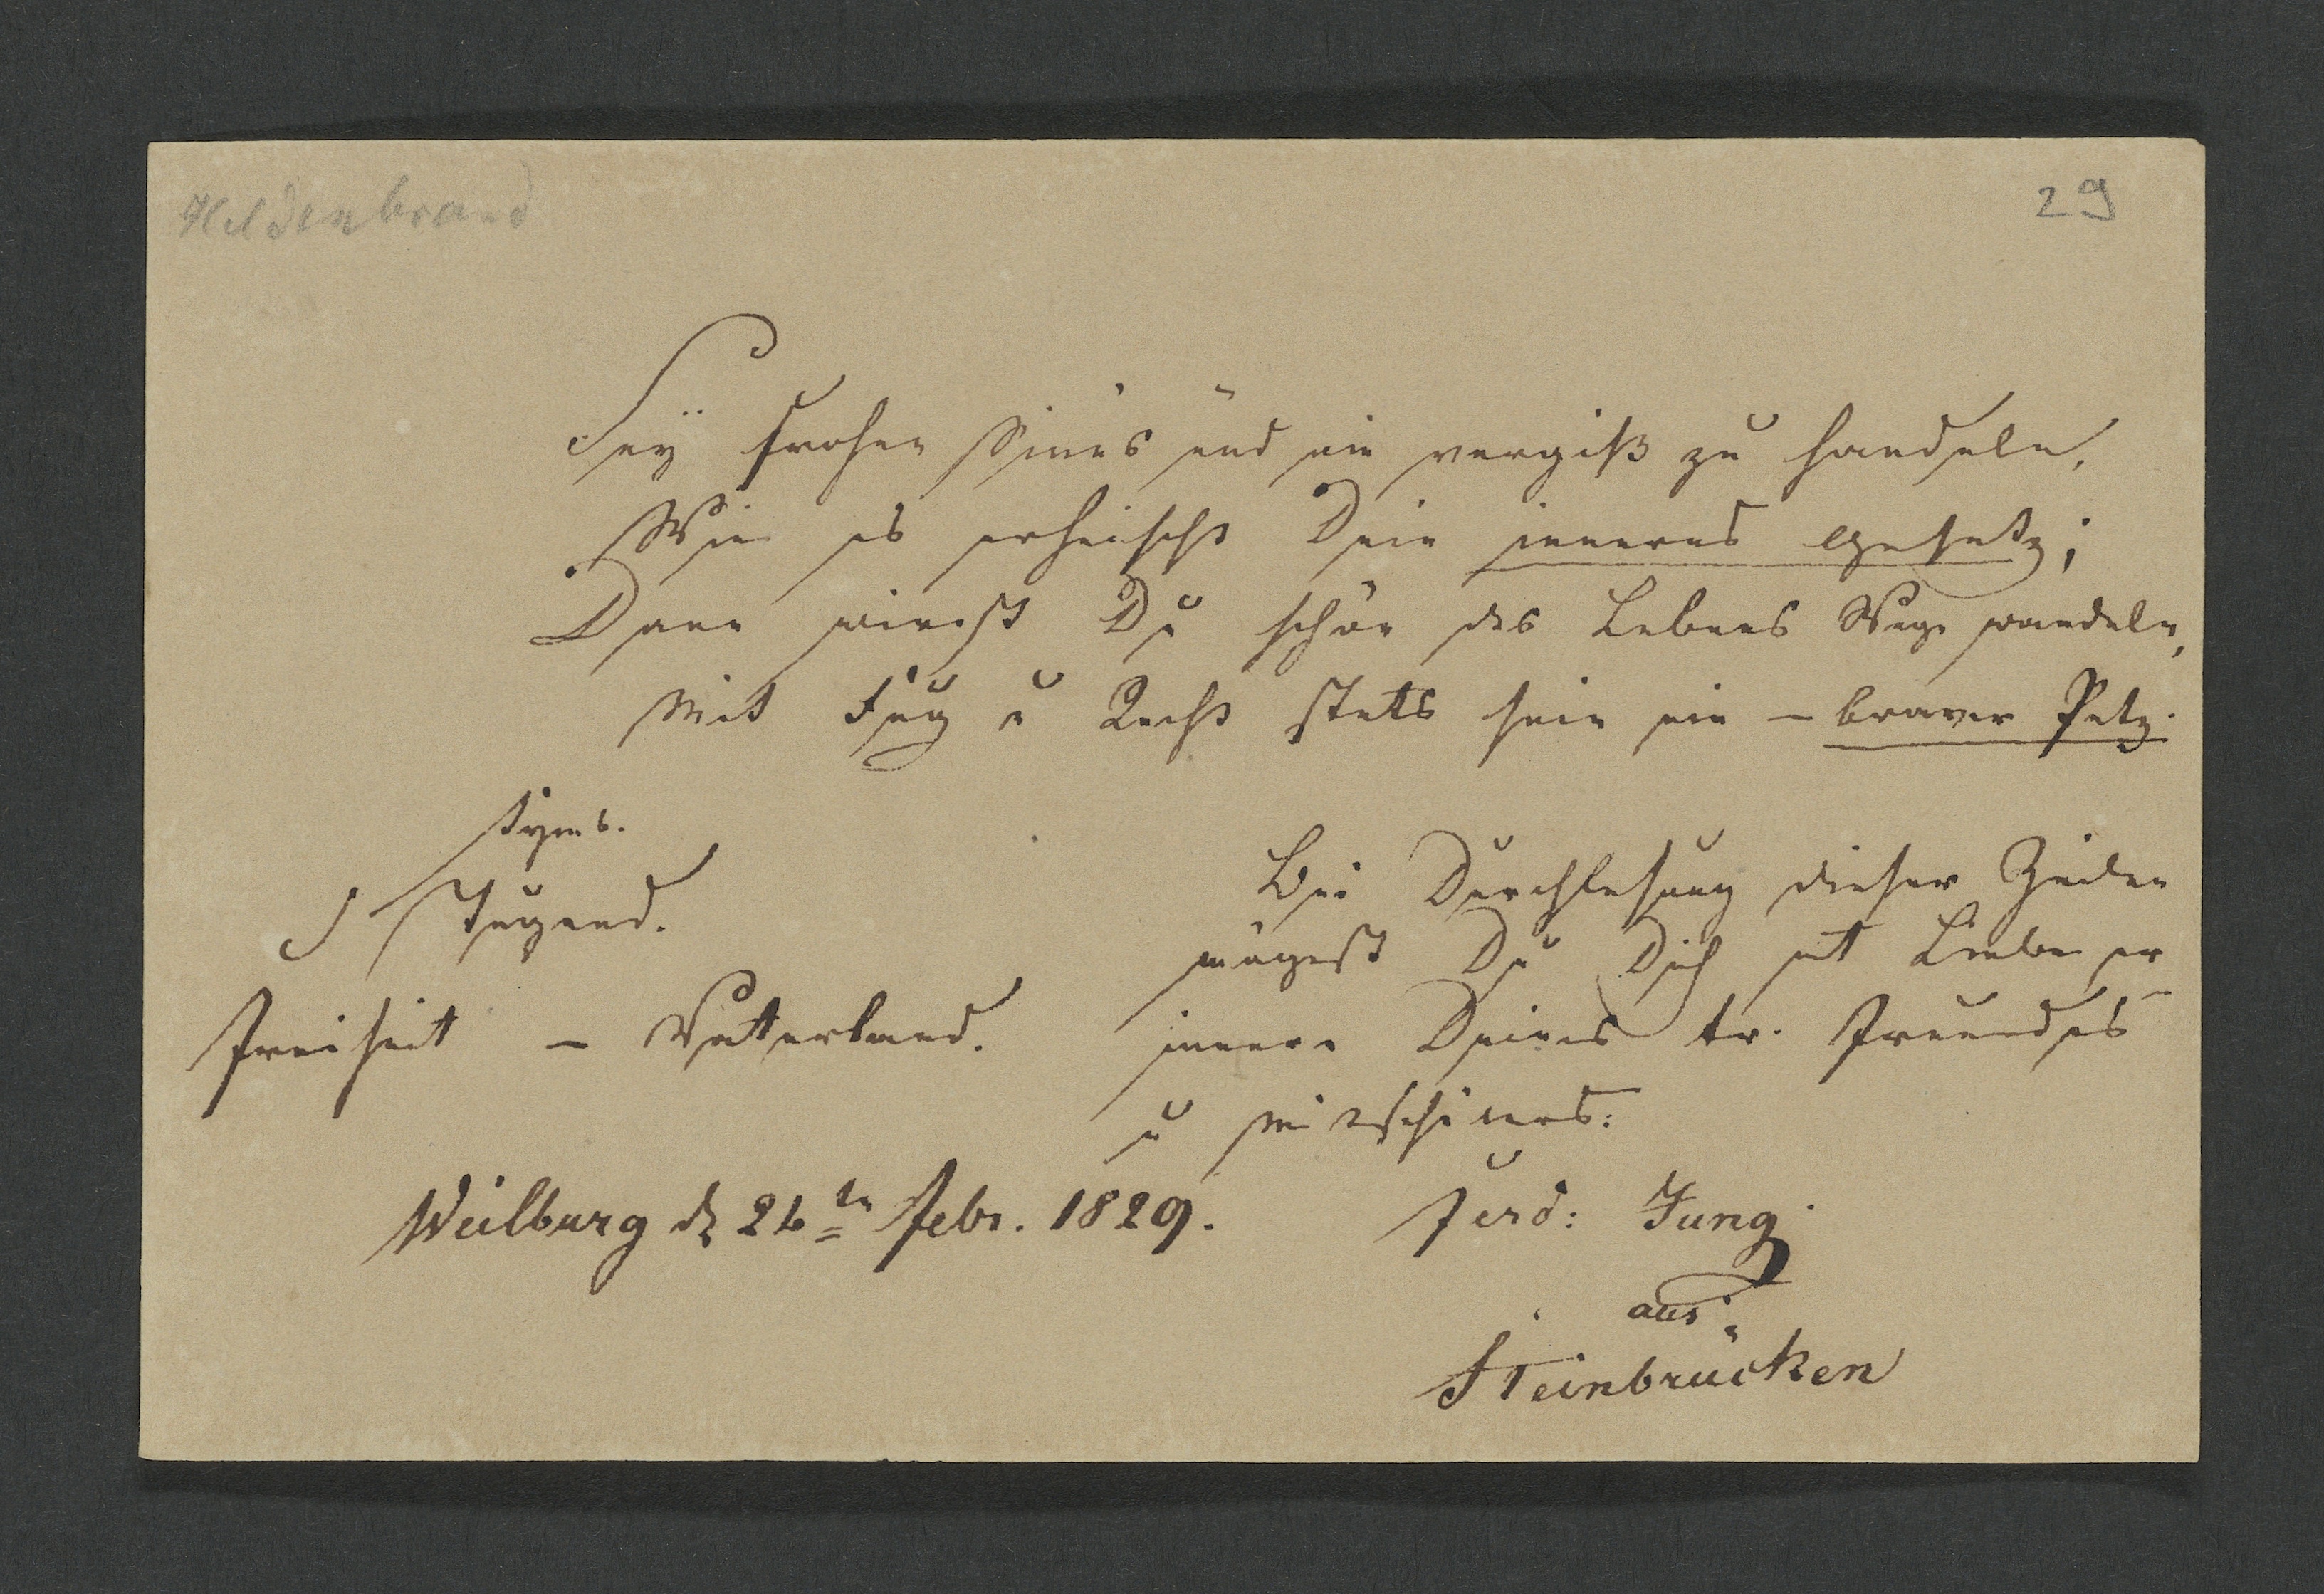 Hildenbrand
29
Sey frohen Sinn's und nie vergiß zu handeln,
Wie es erheischt Dein inneres Gesetz;
Dann wirst Du schön des Lebens Wege wandeln,
Mit Fug u Recht stets sein ein – braver Petz.
Symb.
Tugend.
Freiheit – Vaterland.
Bei Durchlesung dieser Zeilen
mögest Du Dich mit Liebe er-
innern Deines tr. Freundes
u Mitschülers:
Weilburg d 26ten Febr. 1829.
Ferd: Jung.
aus
Steinbrücken